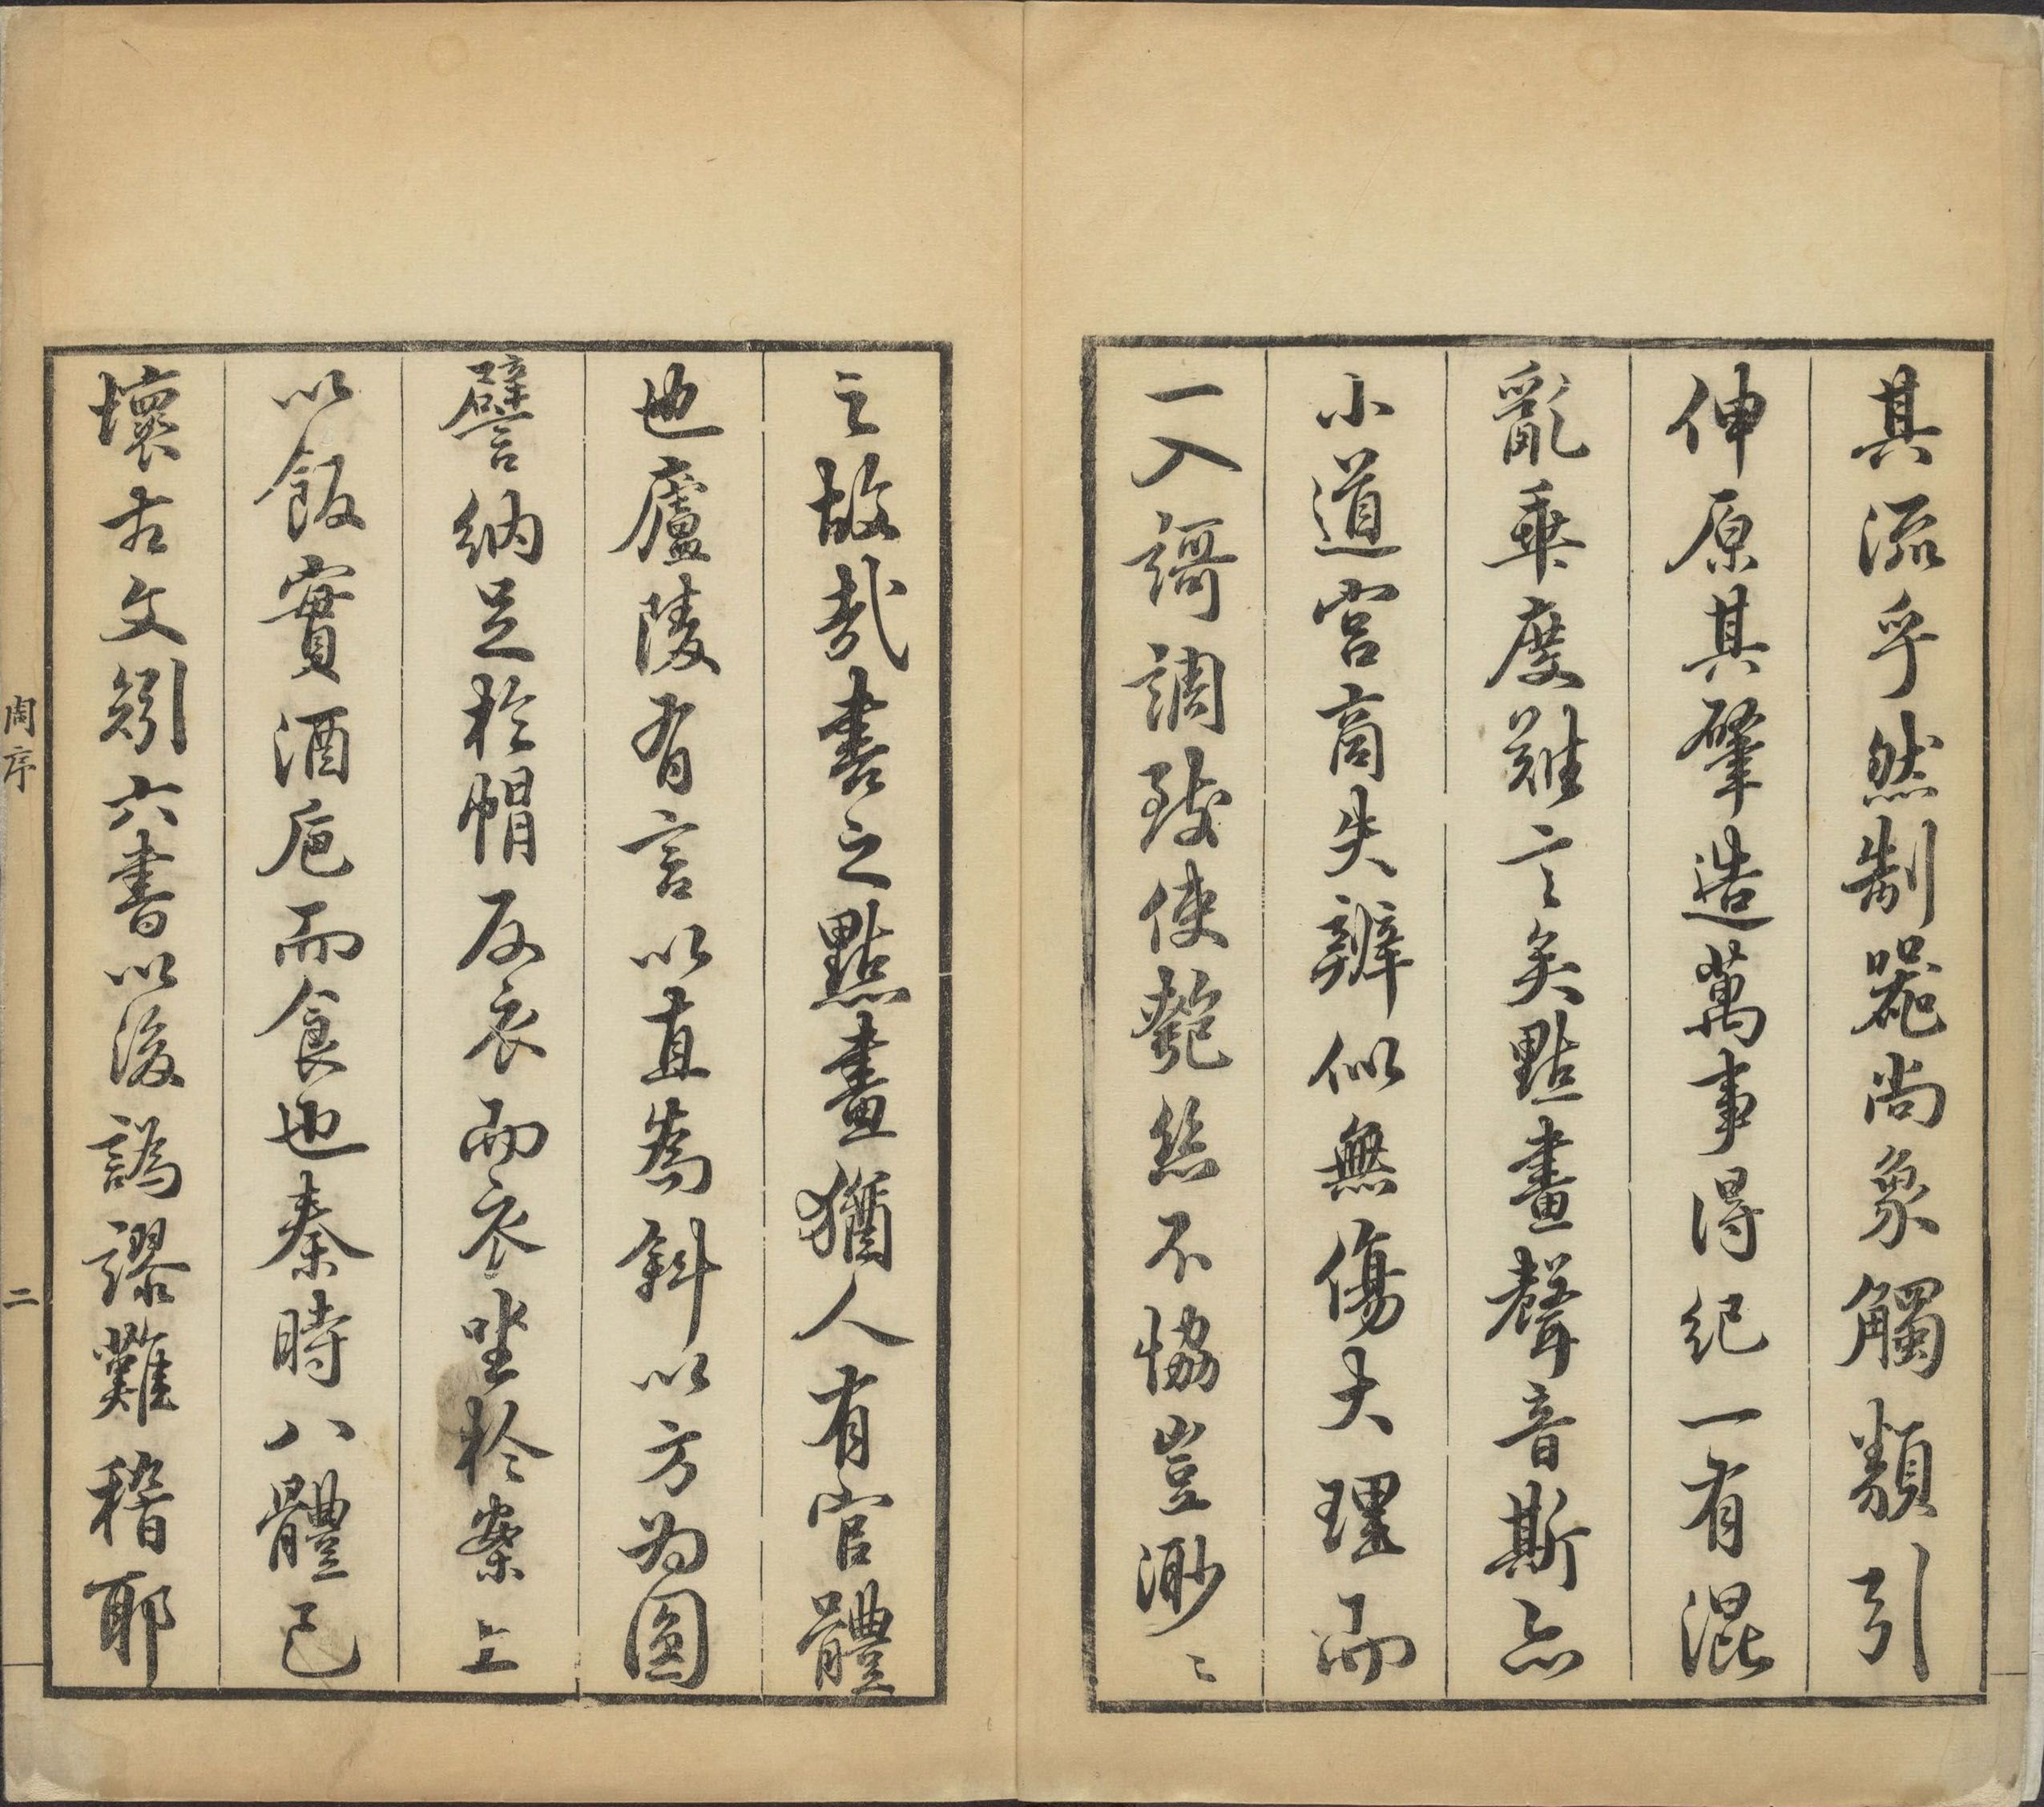 其流乎然制器尚象觸類引
伸原其肇造萬事得紀一有混
亂乗度難言矣點畫聲音斯亦
小道宮商失辨似無傷大理而
一入謌調致使匏絲不恊豈渺〻
之故㢤書之點畫猶人有官體
也廬陵有言以直為斜以方為圓
譬納足於帽反衣而衣坐於案上
以飯實酒巵而食也秦時八體已
壞古文矧六書以後譌謬難稽耶
周序
二